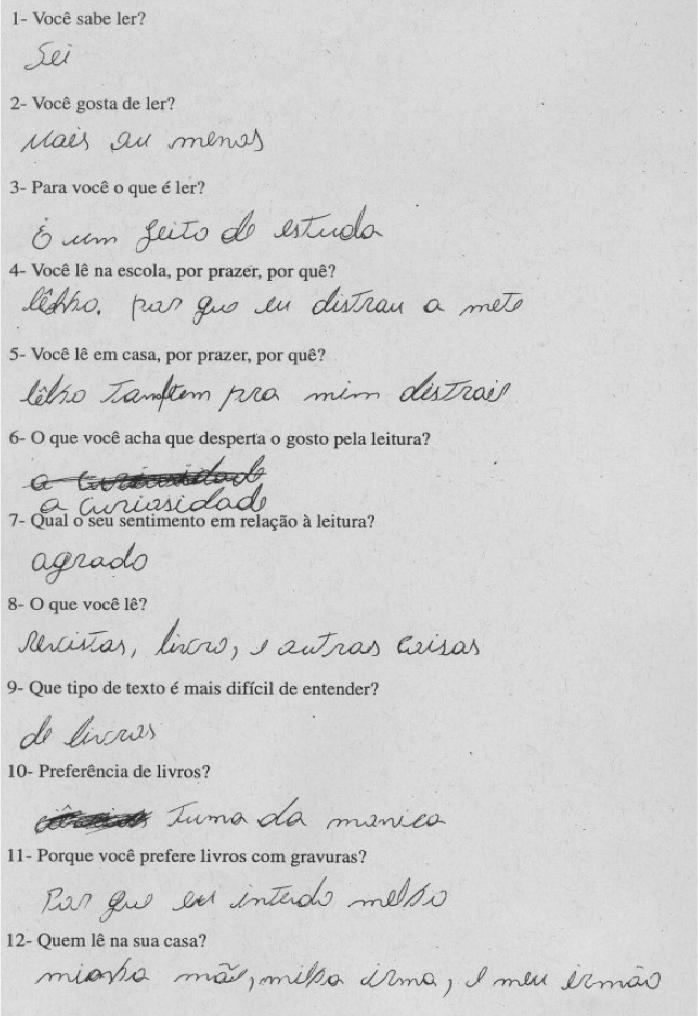 1- Você sabe ler?
Sei
2- Você gosta de ler?
Mais ou menos
3- Para você o que é ler?
É um jeito de estuda
4- Você lê na escola, por prazer, por quê?
lêhho. por que eu distrau a mete
5- Você lê em casa, por prazer, por quê?
lêlho tamtem pra mim distrair
6- O que você acha que desperta o gosto pela leitura?
a curiosidade
a curiosidade
7- Qual o seu sentimento em relação à leitura?
agrado
8- O que você lê?
revistas, livro, e outras coisas
9- Que tipo de texto é mais difícil de entender?
de livros
10- Preferência de livros?
Tuma da monica
11- Porque você prefere livros com gravuras?
Por que eu intendo melho
12- Quem lê na sua casa?
mionha mãe, milha irma, e meu irmão